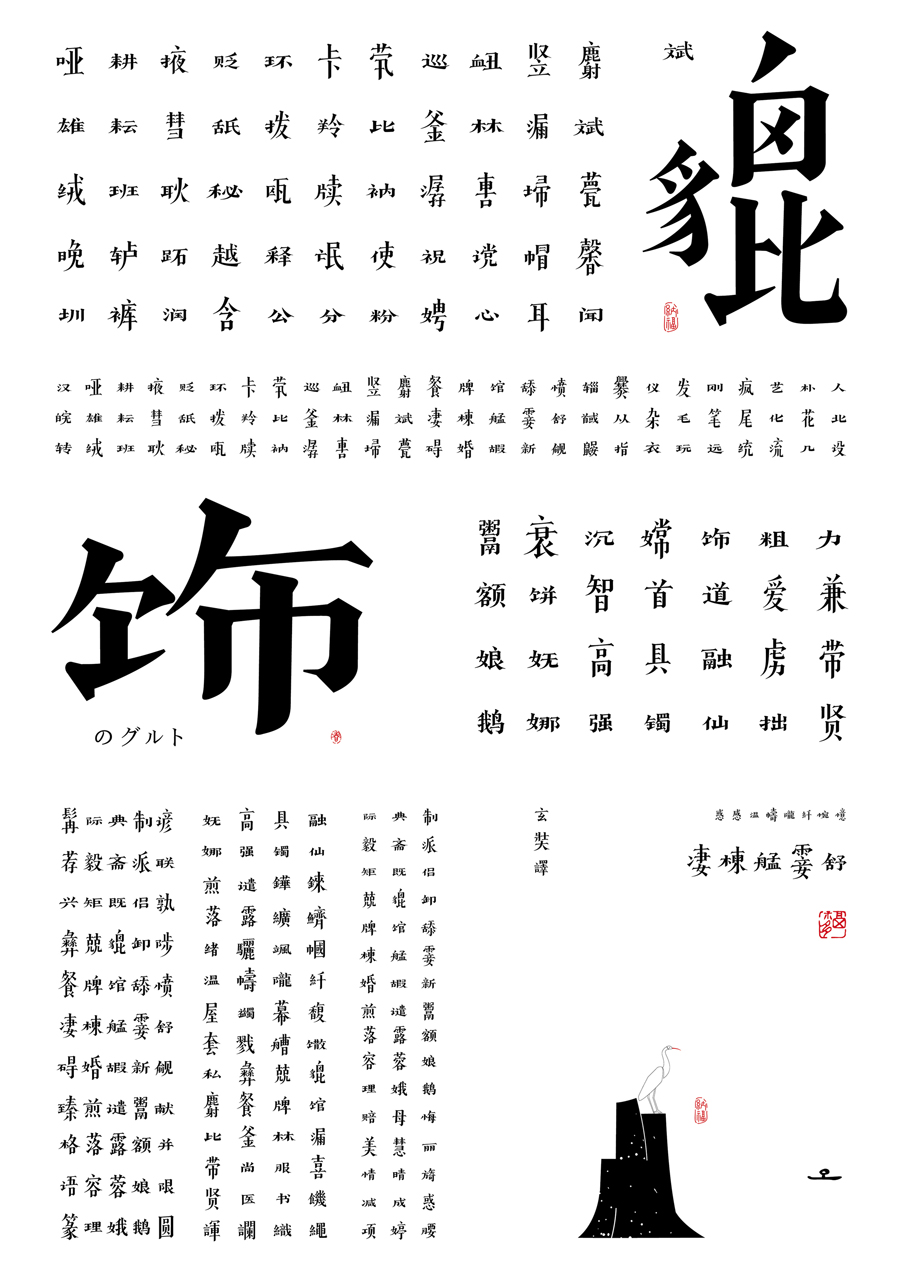 哑耕掖贬环卡茕巡衄竖麝
雄耘彗舐拨羚比釜林漏斌
绒班耿秘瓯牍衲潺軎埽甍
晚轳跖越释氓使祝谠帽馨
圳裤润含公分粉娉心耳闻
斌
貔
汉哑耕掖贬环卡茕巡衄竖麝餐牌馆舔愤辎爨仪发刚疯艺朴人
皖雄耘彗舐拨羚比釜林漏斌凄棟艋霎舒馘从杂毛笔尾化花北
转绒班耿秘瓯牍衲潺軎埽甍碍婚嘏新觎鼹指衣玩远统流几设
饰
のグルト
鬻衰沉嫦饰粗力
额饼智首道爱兼
娘妩高具融虏带
鹅娜强镯仙拙贤
髯际典制谚
荐毅斋派联
兴矩既侣孰
彝兢貔卸陟
餐牌馆舔愤
凄棟艋霎舒
碍婚嘏新觎
臻煎谴鬻献
格落露额并
语容蓉娘眼
篆理娥鹅圆
妩高具融
娜强镯仙
煎谴鏵錸
落露纊鱭
绪骊飒帼
温幬嚨纤
屋蠲幕馥
套戮艚馓
私彝兢貔
麝餐牌馆
比釜林漏
带尚服喜
贤医书饑
諢讕織繩
际典制
毅斋派
矩既侣
兢貔卸
牌馆舔
棟艋霎
婚嘏新
煎谴鬻
落露额
容蓉娘
理娥鹅
赔母悔
美慧丽
情晴旖
减成惑
项婷腰
玄奘譯
惑感温幬嚨纤惋憶
凄棟艋霎舒